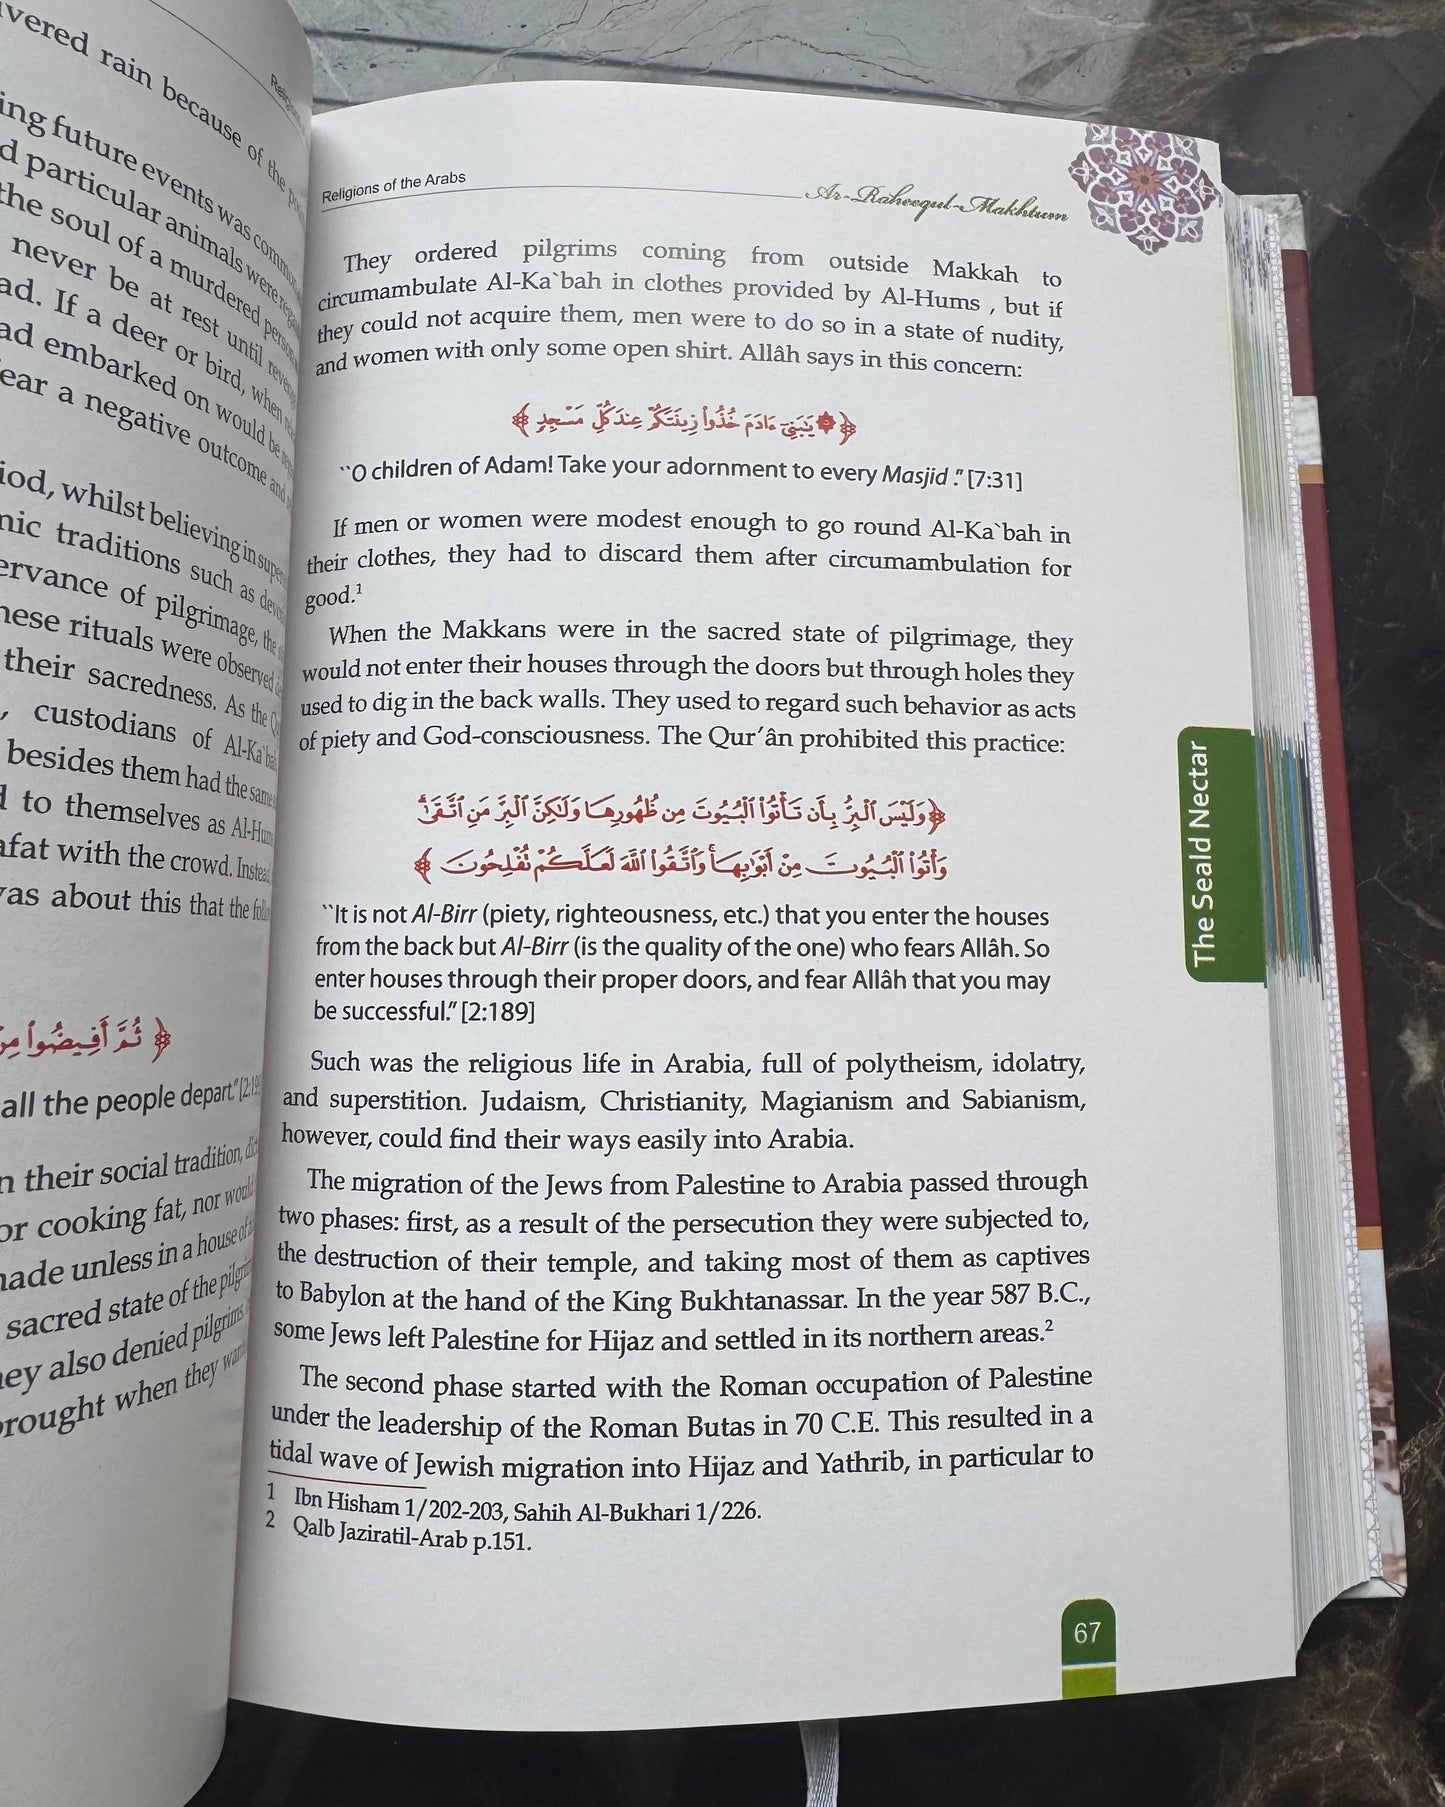 vered rain because of the
ing future events was
d particular animals were
the soul of a murdered person
never be at rest until
ad. If a deer or bird, when
ad embarked on would be
ear a negative outcome and
iod, whilst believing in
mic traditions such as
ervance of pilgrimage, the
hese rituals were observed
their sacredness. As the
, custodians of
besides them had the same
d to themselves as
afat with the crowd.
was about this that the
﴿ ثُمَّ أَفِيضُوا۟ مِنْ
all the people depart."
n their social tradition,
or cooking fat, nor
made unless in a house of
sacred state of the
hey also denied pilgrims
brought when they
Religions of the Arabs
Ar-Raheequl-Makhtum
They ordered pilgrims coming from outside Makkah to
circumambulate Al-Ka`bah in clothes provided by Al-Hums , but if
they could not acquire them, men were to do so in a state of nudity,
and women with only some open shirt. Allâh says in this concern:
﴿ ۞ يَٰبَنِىٓ ءَادَمَ خُذُوا۟ زِينَتَكُمْ عِندَ كُلِّ مَسْجِدٍ ﴾
``O children of Adam! Take your adornment to every Masjid ." [7:31]
If men or women were modest enough to go round Al-Ka`bah in
their clothes, they had to discard them after circumambulation for
good.1
When the Makkans were in the sacred state of pilgrimage, they
would not enter their houses through the doors but through holes they
used to dig in the back walls. They used to regard such behavior as acts
of piety and God-consciousness. The Qur'ân prohibited this practice:
﴿ وَلَيْسَ ٱلْبِرُّ بِأَن تَأْتُوا۟ ٱلْبُيُوتَ مِن ظُهُورِهَا وَلَٰكِنَّ ٱلْبِرَّ مَنِ ٱتَّقَىٰ
وَأْتُوا۟ ٱلْبُيُوتَ مِنْ أَبْوَٰبِهَا وَٱتَّقُوا۟ ٱللَّهَ لَعَلَّكُمْ تُفْلِحُونَ ﴾
``It is not Al-Birr (piety, righteousness, etc.) that you enter the houses
from the back but Al-Birr (is the quality of the one) who fears Allâh. So
enter houses through their proper doors, and fear Allâh that you may
be successful." [2:189]
Such was the religious life in Arabia, full of polytheism, idolatry,
and superstition. Judaism, Christianity, Magianism and Sabianism,
however, could find their ways easily into Arabia.
The migration of the Jews from Palestine to Arabia passed through
two phases: first, as a result of the persecution they were subjected to,
the destruction of their temple, and taking most of them as captives
to Babylon at the hand of the King Bukhtanassar. In the year 587 B.C.,
some Jews left Palestine for Hijaz and settled in its northern areas.2
The second phase started with the Roman occupation of Palestine
under the leadership of the Roman Butas in 70 C.E. This resulted in a
tidal wave of Jewish migration into Hijaz and Yathrib, in particular to
1 Ibn Hisham 1/202-203, Sahih Al-Bukhari 1/226.
2 Qalb Jaziratil-Arab p.151.
67
The Seald Nectar